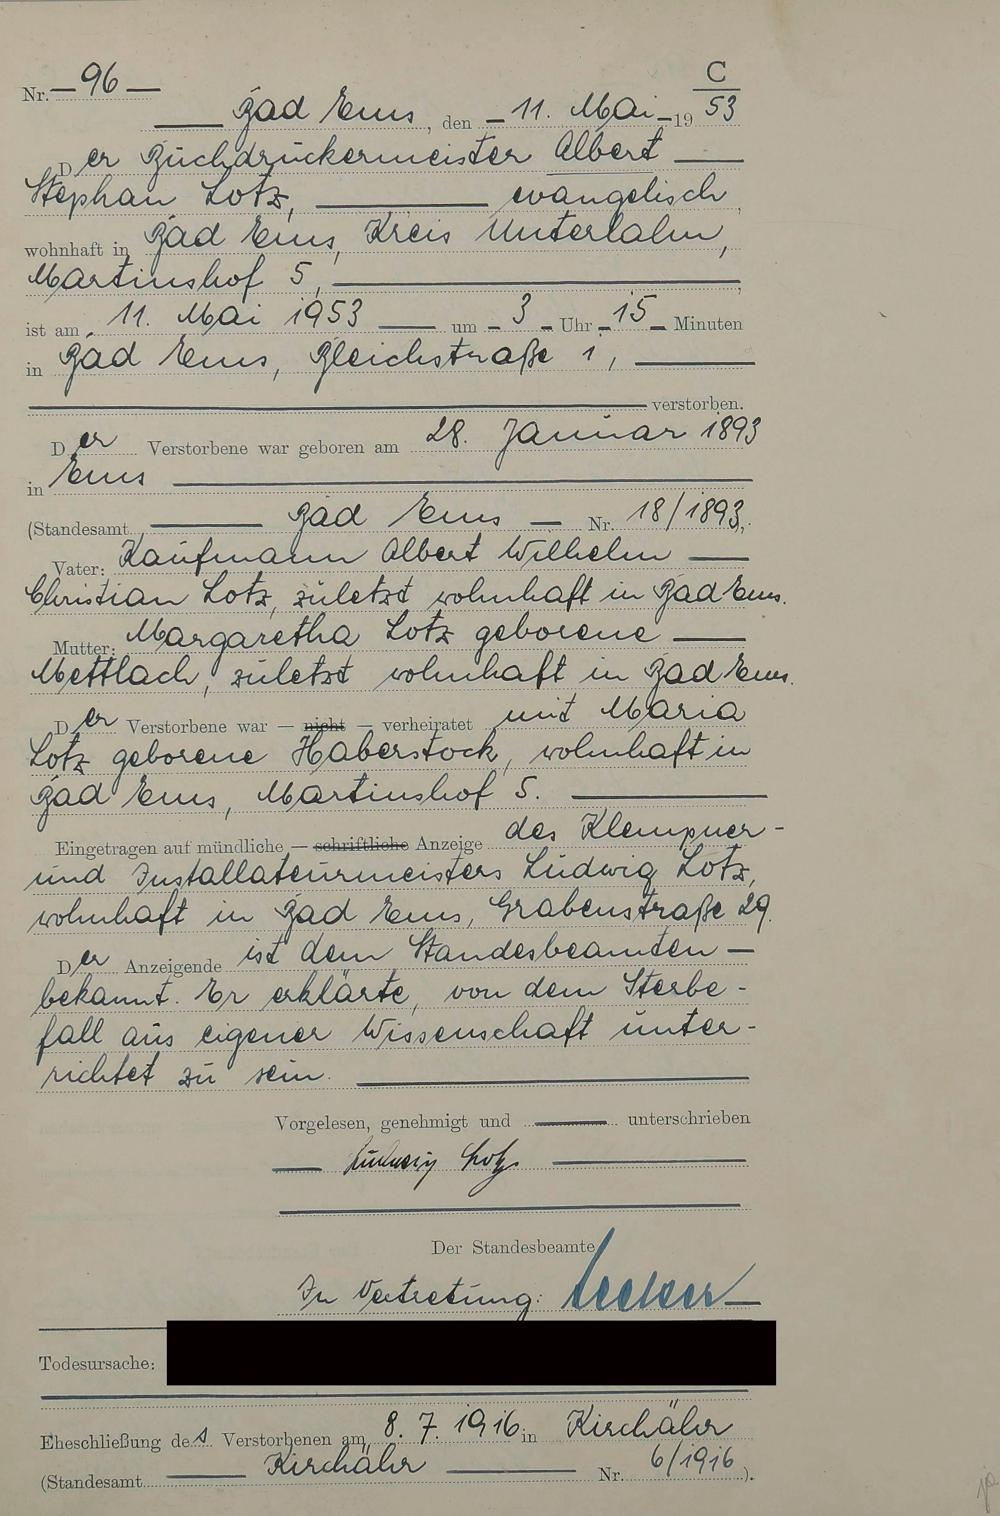 C
Nr. — 96 —
Bad Ems, den — 11. Mai — 19 53
Der Buchdruckermeister Albert
Stephan Lotz, evangelisch,
wohnhaft in Bad Ems, Kreis Unterlahn,
Martinshof 5,
ist am 11. Mai 1953 um — 3 — Uhr — 15 — Minuten
in Bad Ems, Bleichstraße 1,
verstorben.
Der Verstorbene war geboren am 28. Januar 1893
in Ems
(Standesamt Bad Ems — Nr. 18/1893).
Vater: Kaufmann Albert Wilhelm
Christian Lotz, zuletzt wohnhaft in Bad Ems.
Mutter: Margaretha Lotz geborene
Mettlach, zuletzt wohnhaft in Bad Ems.
Der Verstorbene war — nicht — verheiratet mit Maria
Lotz geborene Haberstock, wohnhaft in
Bad Ems, Martinshof 5.
Eingetragen auf mündliche — schriftliche Anzeige des Klempner-
und Installateurmeisters Ludwig Lotz,
wohnhaft in Bad Ems, Grabenstraße 29.
Der Anzeigende ist dem Standesbeamten
bekannt. Er erklärte, von dem Sterbe-
fall aus eigener Wissenschaft unter-
richtet zu sein.
Vorgelesen, genehmigt und unterschrieben
Ludwig Lotz
Der Standesbeamte
In Vertretung:
Todesursache:
Eheschließung des Verstorbenen am 8. 7. 1916 in Kirchähr
(Standesamt Kirchähr Nr. 6/1916).